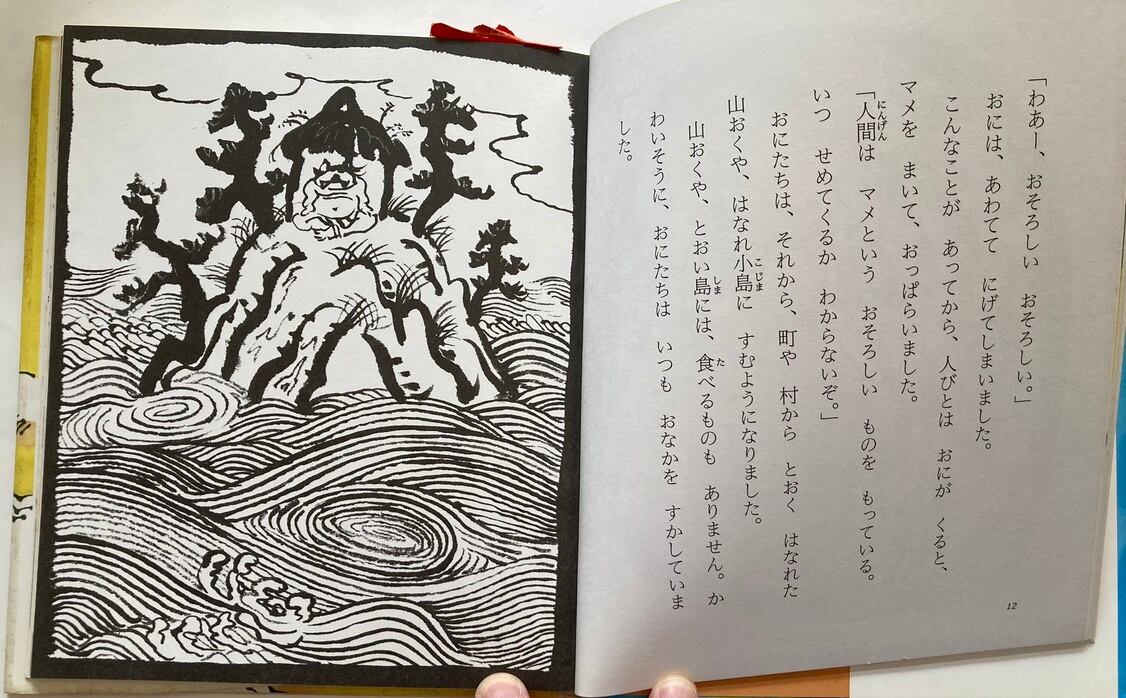 「わあー、おそろしい　おそろしい。」
おには、あわてて　にげてしまいました。
こんなことが　あってから、人びとは　おにが　くると、
マメを　まいて、おっぱらいました。
「人間は　マメという　おそろしい　ものを　もっている。
いつ　せめてくるか　わからないぞ。」
おにたちは、それから、町や　村から　とおく　はなれた
山おくや、はなれ小島に　すむようになりました。
山おくや、とおい島には、食べるものも　ありません。か
わいそうに、おにたちは　いつも　おなかを　すかしていま
した。
12